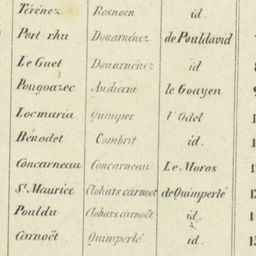 Térénez Rosnoen id.
Port rhu Douarnénez de Pouldavid
Le Guet Douarnénez id
Pougoazec Audierne le Goayen
Locmaria Quimper l'Odet
Bénodet Combrit id.
Concarneau Concarneau Le Moros
St. Maurice Clohars carnoet de Quimperlé
Pouldu Clohars carnoët id.
Carnoët Quimperlé id.